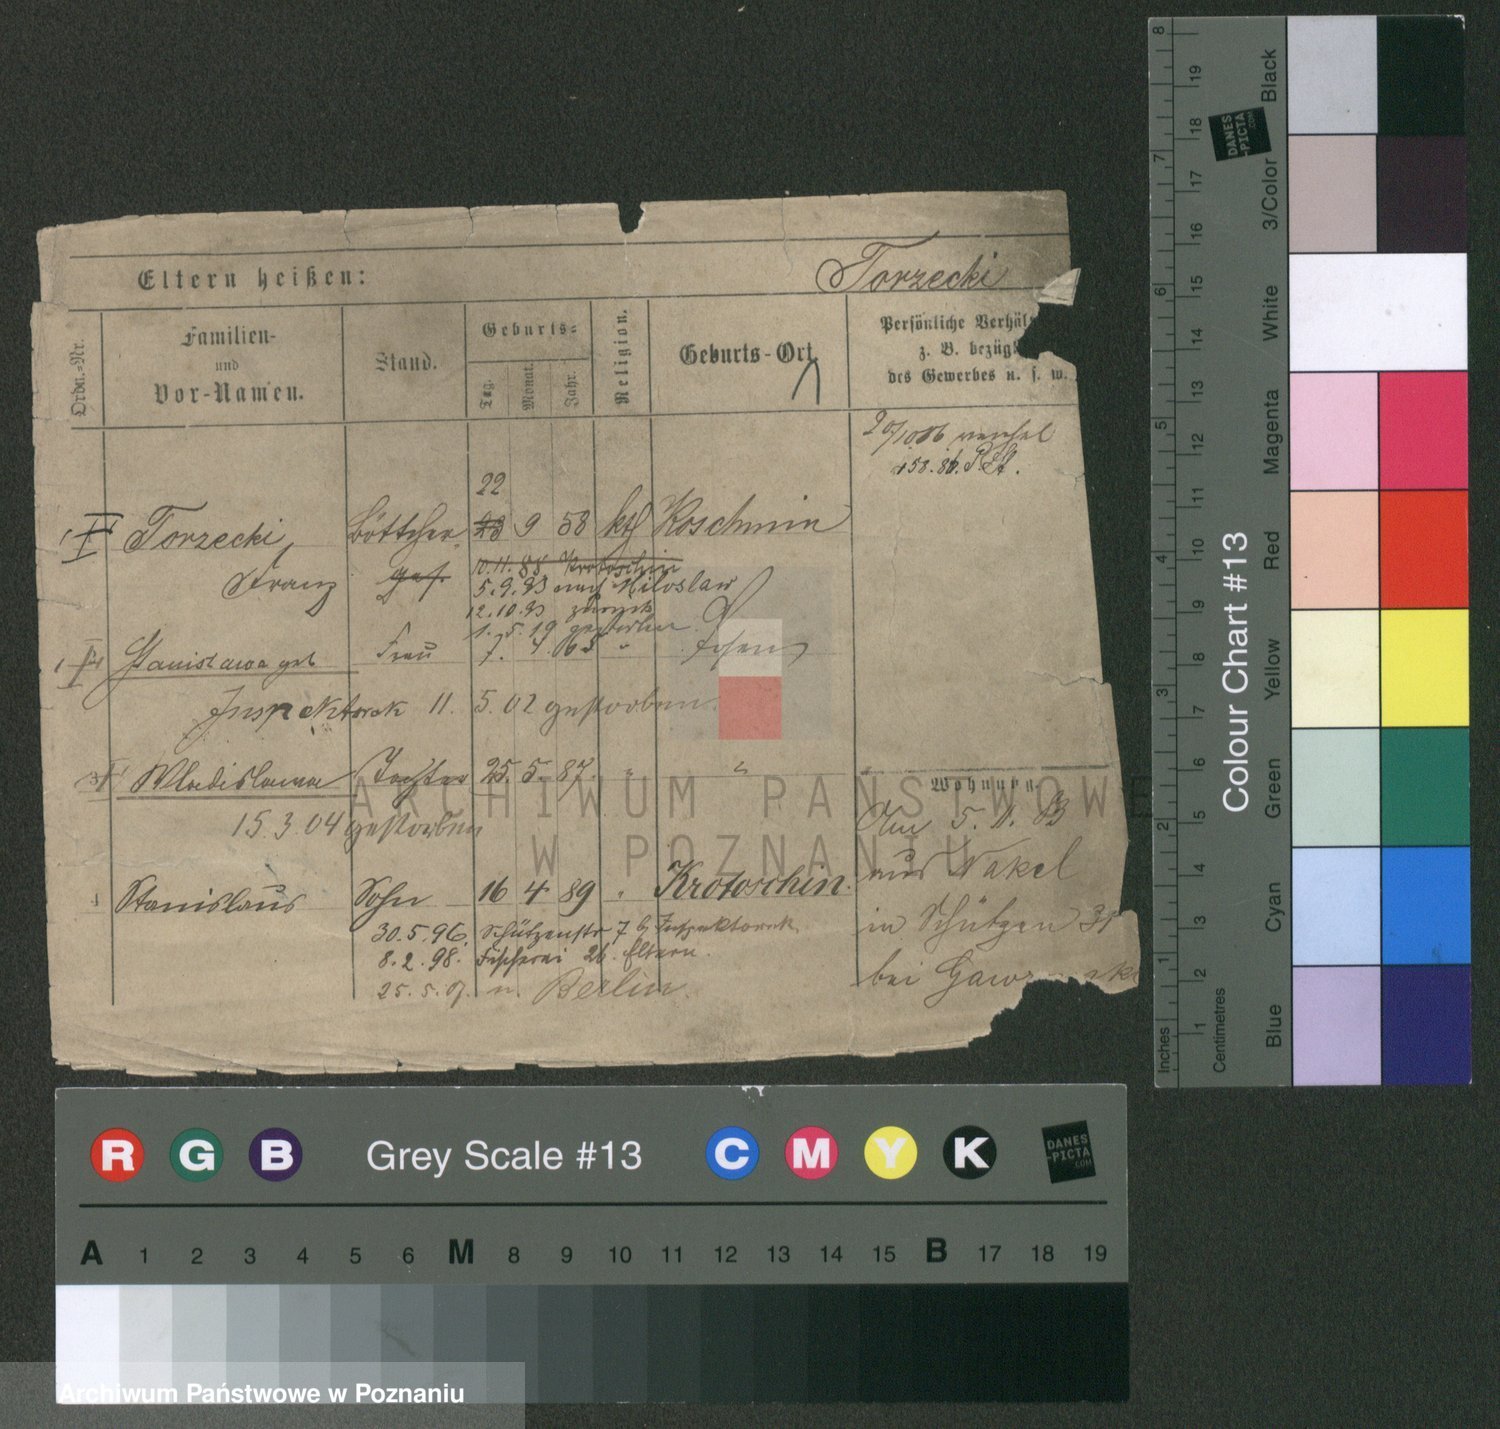 Eltern heißen:
Torzecki
Ordn.-Nr.
Familien-
und
Vor-Namen.
Stand.
Geburts-
Tag.
Monat.
Jahr.
Religion.
Geburts-Ort
Persönliche Verhäl
z. B. bezügl
des Gewerbes u. s. w.
158.86.
22
Torzecki, Böttcher 23 9 58 kth Koschmin
Franz
10.11.88 Krotoschin
5.9.93 nach Miloslaw
12.10.93 zurück
1. 5. 19 gestorben
Stanislawa geb Frau 7. 4. 63 " Posen
Inspektorek 11. 5. 02 gestorben
Wladislawa Tochter 25. 5 87. " "
15.3.04 gestorben
Wohnung
5. 11.
aus Nakel
in Schützen 31
bei
Stanislaus Sohn 16 4 89 " Krotoschin.
30.5.96. Schützenstr 7 b Inspektorek
8.2.98. Fischerei 26. Eltern.
25.5.07. n. Berlin
ARCHIWUM PAŃSTWOWE
W POZNANIU
Colour Chart #13
Inches
1 2 3 4 5 6 7 8
Centimetres
1 2 3 4 5 6 7 8 9 10 11 12 13 14 15 16 17 18 19
Blue
Cyan
Green
Yellow
Red
Magenta
White
3/Color
Black
DANES
-PICTA
.COM
R G B
Grey Scale #13
C M Y K
DANES
-PICTA
.COM
A 1 2 3 4 5 6 M 8 9 10 11 12 13 14 15 B 17 18 19
Archiwum Państwowe w Poznaniu